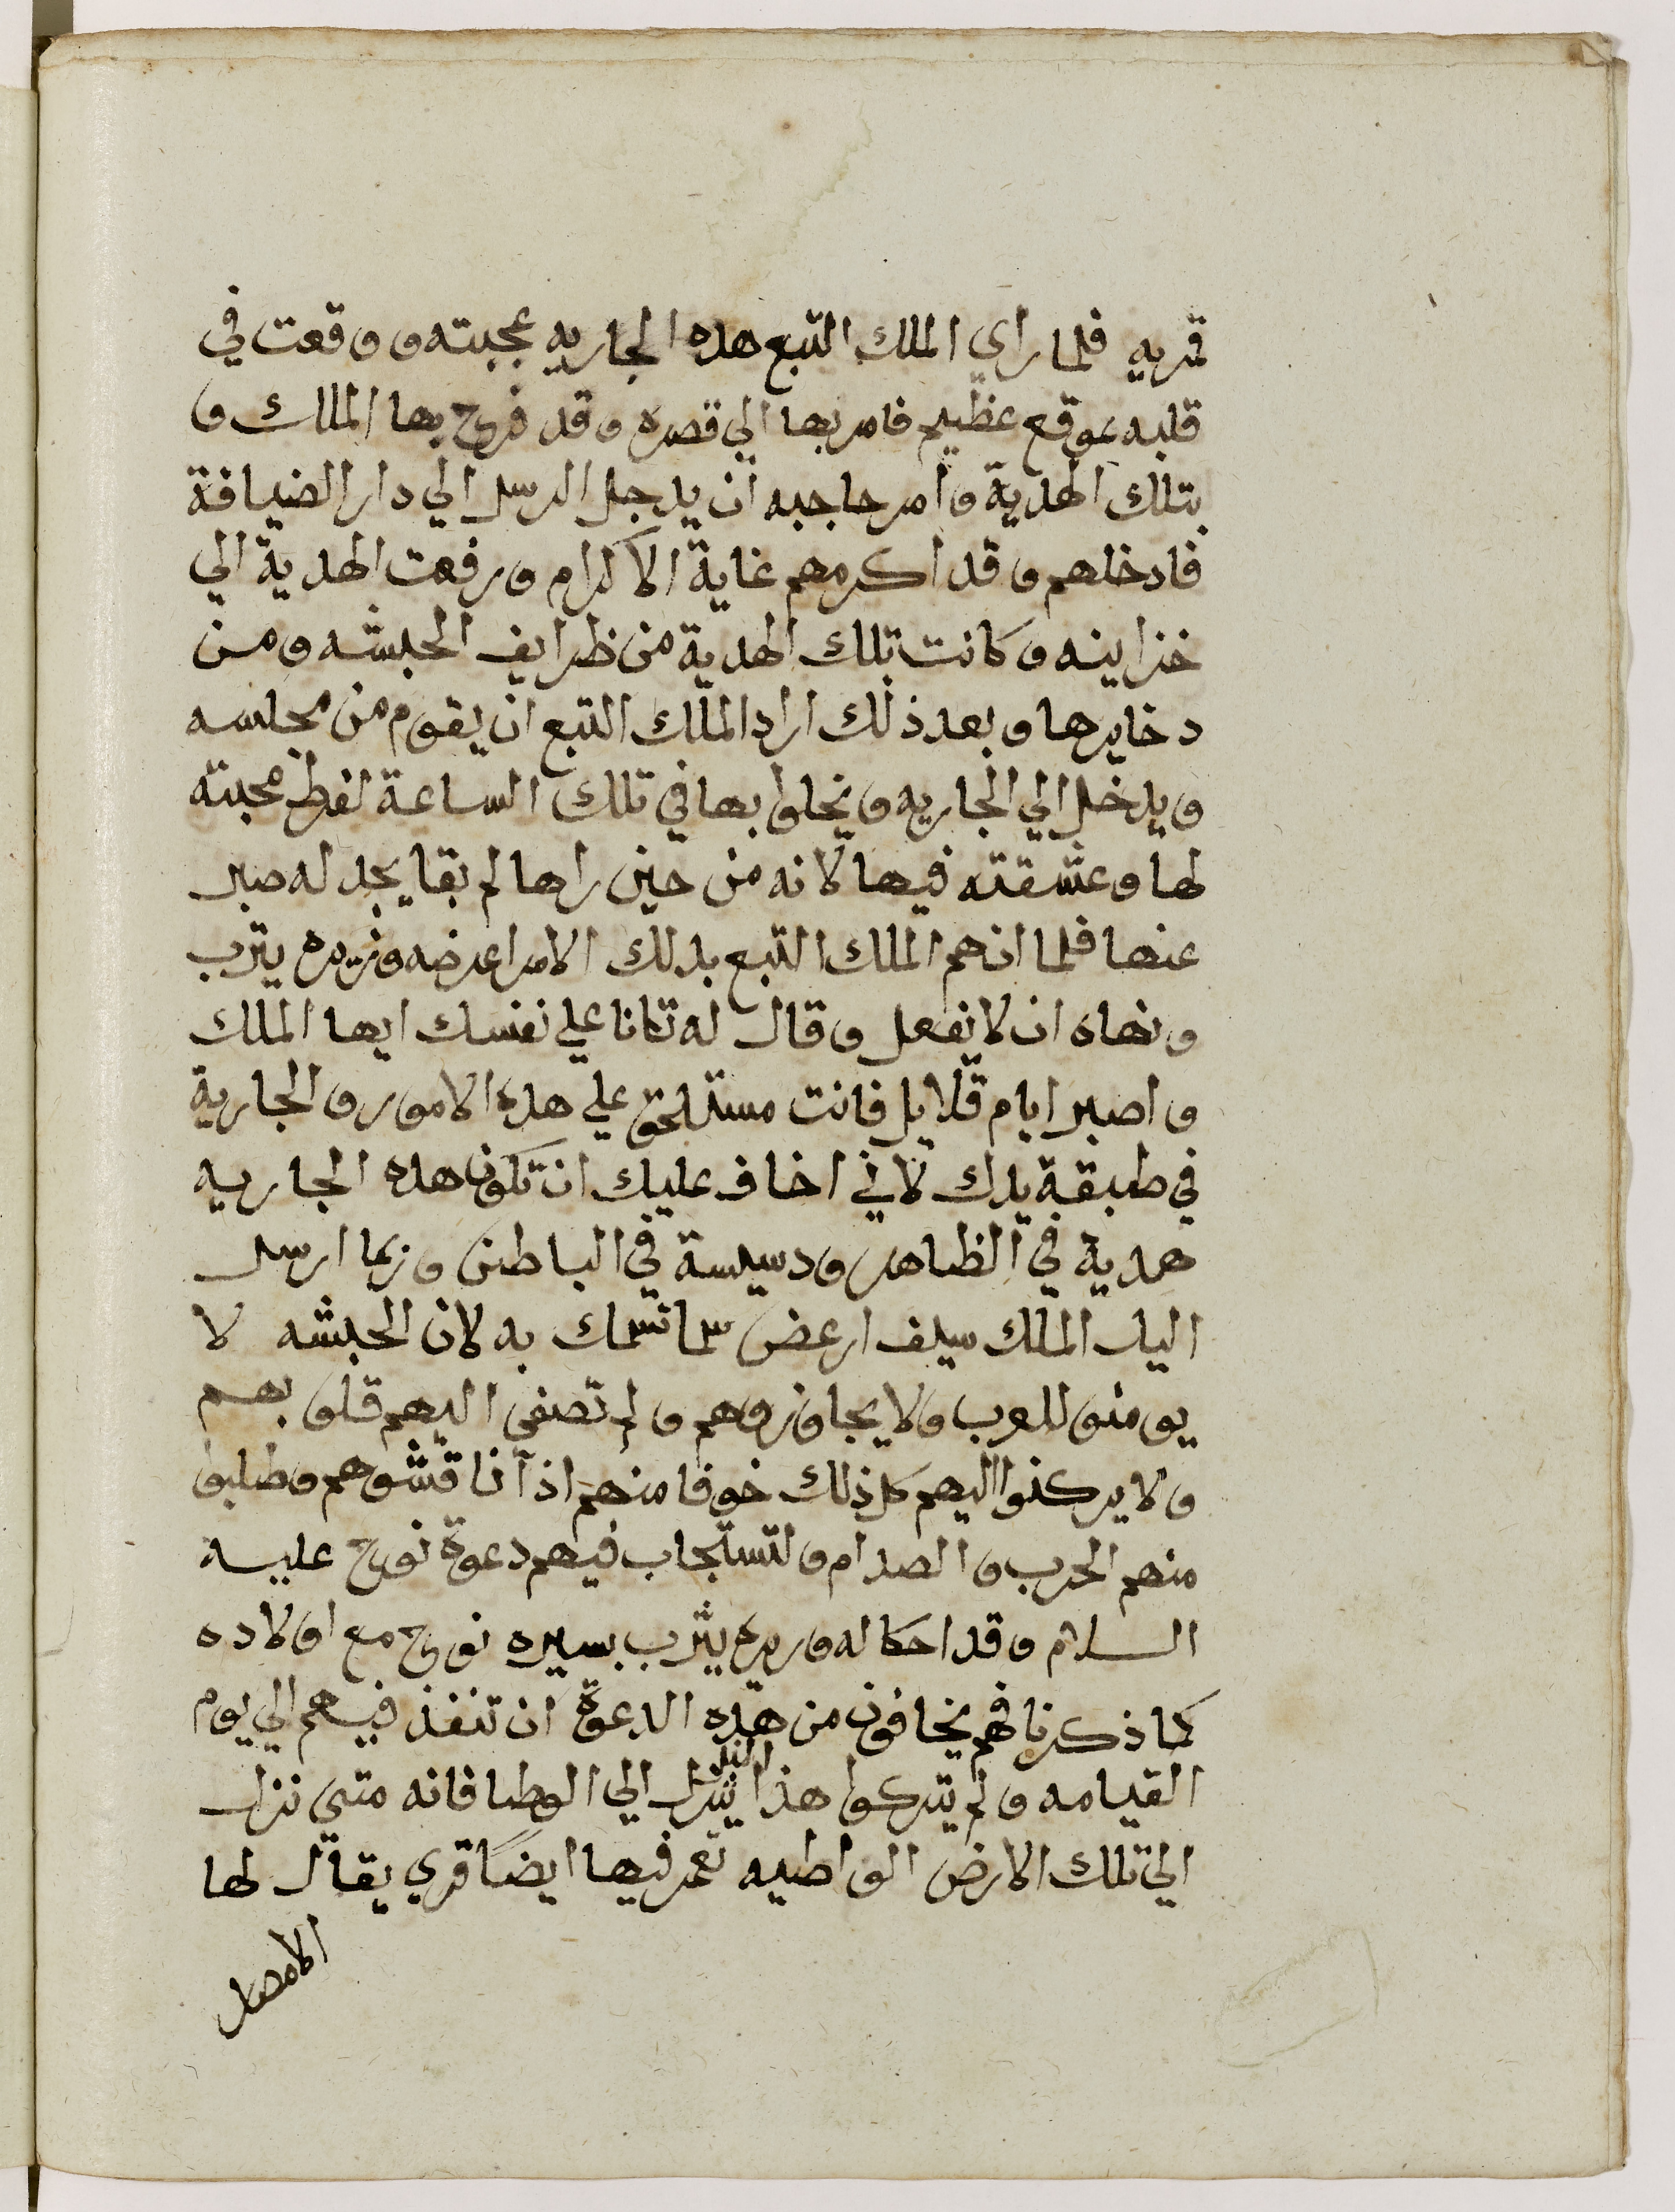 قمريه فلما راي الملك التبع هذه الجاريه عجبته ووقعت في
قلبه بموقع عظيم فامر بها الي قصره وقد فرح بها الملك و
بتلك الهدية وامر حاجبه ان يدخل الرسل الي دار الضيافة
فادخلهم وقد اكرمهم غاية الاكرام ورفعت الهدية الي
خزاينه وكانت تلك الهدية من ظرايف الحبشه ومن
دخايرها وبعد ذلك اراد الملك التبع ان يقوم من مجلسه
ويدخل الي الجاريه ويخلوا بها في تلك الساعة لفرط محبته
لها وعشقته فيها لانه من حين راها لم بقا يجد له صبر
عنها فلما انهم الملك التبع بدلك الامر اعرضه وزيره يترب
ونهاه ان لا تفعل وقال له تانا علي نفسك ايها الملك
واصبر ايام قلايل فانت مستلحق علي هذه الامور والجارية
في طبقة يدك لاني اخاف عليك ان تكون هذه الجاريه
هدية في الظاهر ودسيسة في الباطن وربما ارسل
اليك الملك سيف ارعض سما تسمك به لان الحبشه لا
يومنو للعرب ولا يجاوزوهم ولم تصفي اليهم قلوبهم
ولا يركنوا اليهم كل ذلك خوفا منهم اذا ناقشوهم وطلبو
منهم الحرب والصدام ولتستجاب فيهم دعوة نوح عليه
السلام وقد احكا له وزيره يثرب بسيره نوح مع اولاده
كما ذكرنا فهم يخافون من هذه الدعوة ان تنفذ فيهم الي يوم
القيامه ولم يتركوا هذا النيل ينزل الي الوطا فانه متي نزل
الي تلك الارض الواطيه تعمر فيها ايضا قري يقال لها
الامصار